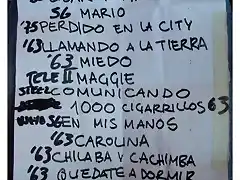 56 MARIO
'75 PERDIDO EN LA CITY
'63 LLAMANDO A LA TIERRA
'63 MIEDO
TELE II MAGGIE
STEEL COMUNICANDO
1000 CIGARRILLOS 63
56 EN MIS MANOS
'63 CAROLINA
'63 CHILABA Y CACHIMBA
'63 QUEDATE A DORMIR